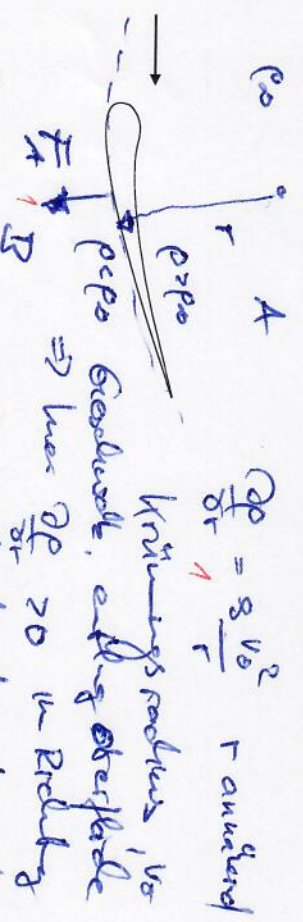 p∞
A
r
p>p∞
p<p∞
F_A
1
B
∂p/∂r = ρ v₀²/r   r annähernd
1
Krümmungsradius, v₀
Geschwindk. entlang Oberfläche
=> hier ∂p/∂r >0 in Richtung